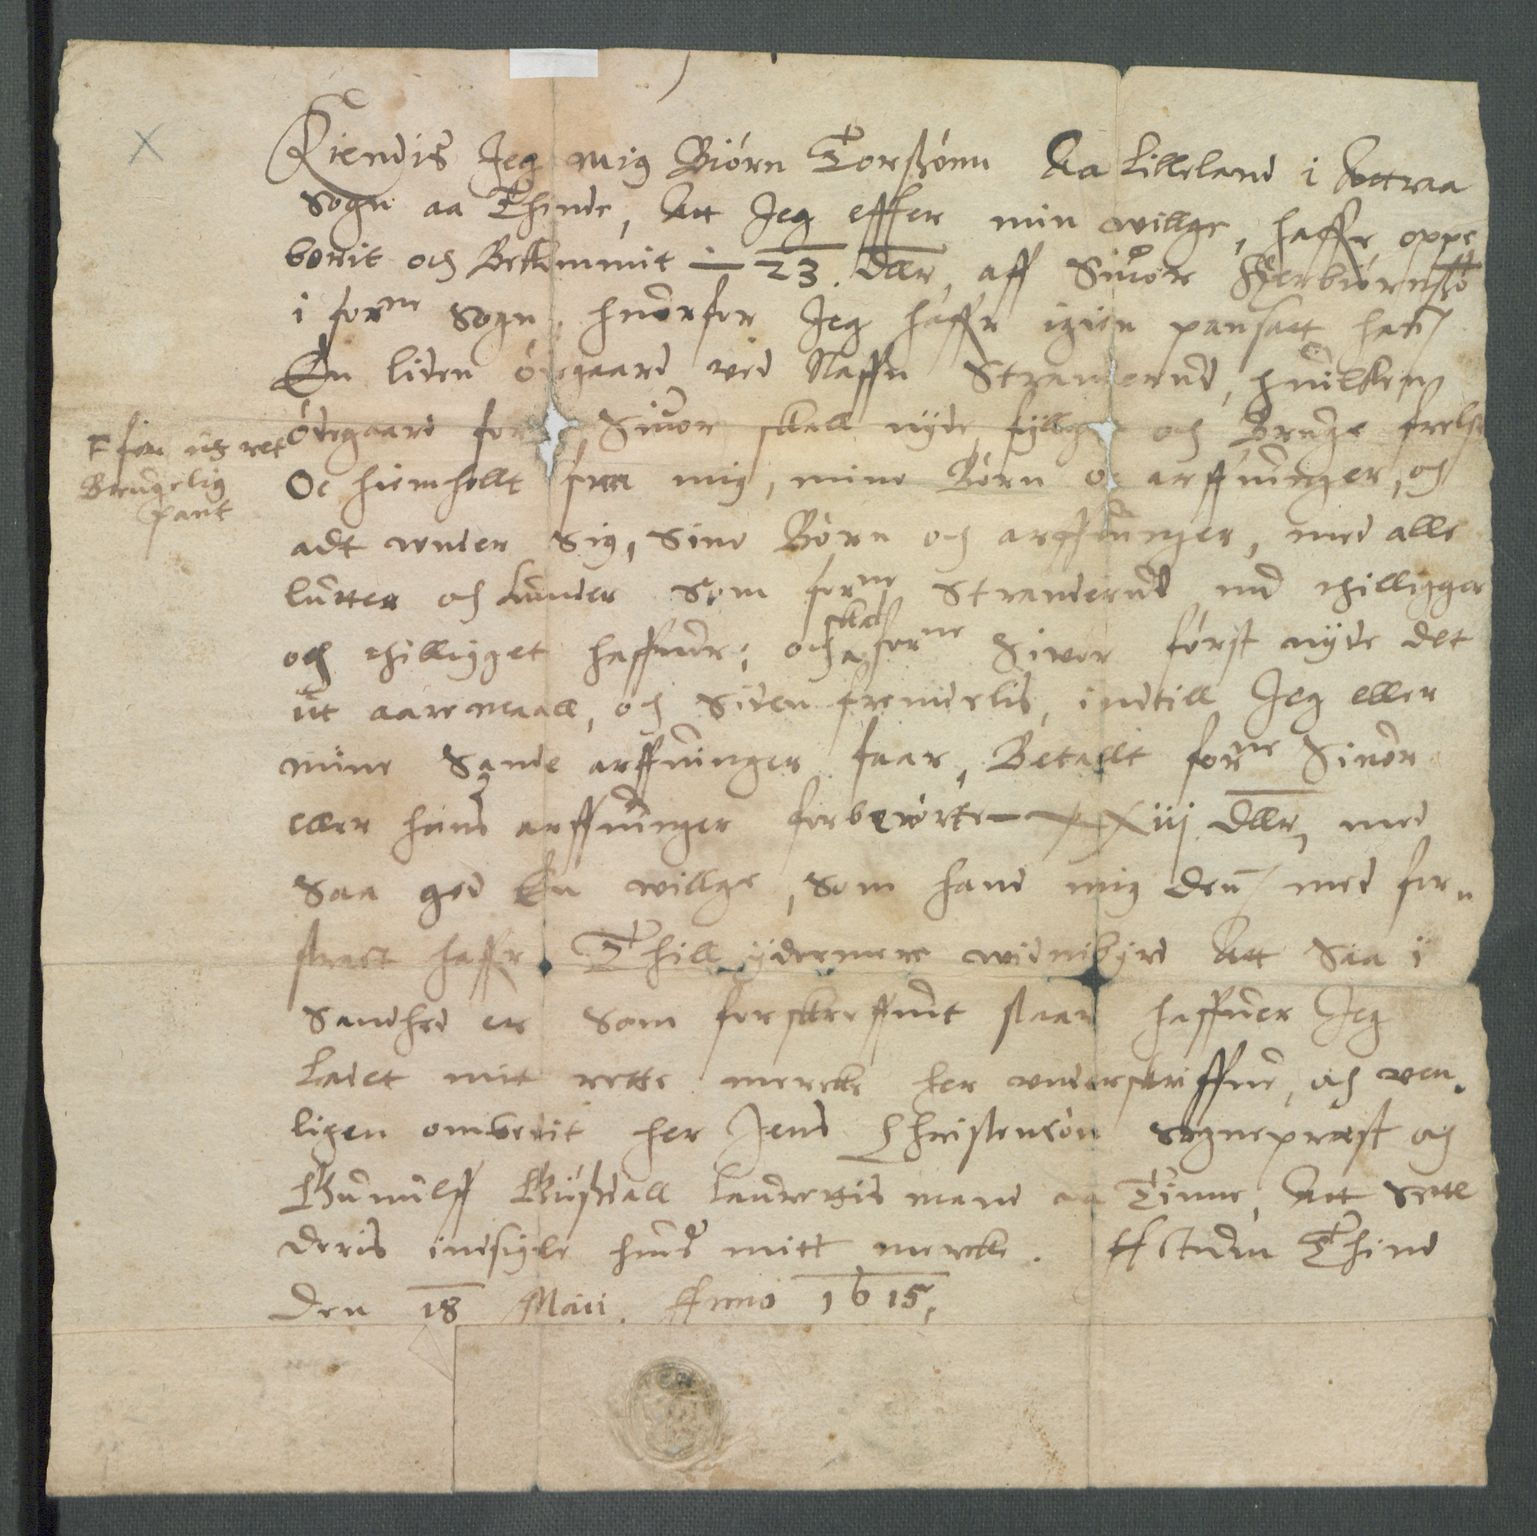 Kiendis Jeg mig Biørn Torßønn Aa Lilleland i Attraa
Sogn aa Thinde, Att Jeg effter min willge, haffr oppe
borit och Bekkommit — 23. dlr, aff Siuor Herbiørnßø
i forne Sogn, huorfor Jeg haffr igien pansatt han
En liden ødegaard ved Naffn Stranderud, huilken
ødegaard for Siuor skall nyde, fyllge och Bruge frelst
Oc hiemhollt fraa mig, mine Børn oc arffuinger, och
F for it ret
Brugelig
pant
adt wnder Sig, Sine Børn och arffuinger, med alle
lutter och lunder Som forne Stranderud nu thilligger
och thilligget haffuer; och skal forne Siuor først nyde det
ut aaremaall, och Siden fremdelis, indtill Jeg eller
mine Sande arffuinger faar, Betallt forne Siuor
eller hans arffuinger forberørte — XXiij dlr, med
Saa god En willge, Som hand mig den med for„
stract haffr Thill ydermere widnibyrd Att Saa i
Sandhed er Som forskreffuit staar haffuer Jeg
Ladet mit rette mercke her vnderskriffue, och ven„
ligen ombedit her Jens Christensøn Sognepræst och
Gunulff Bußdall Laurettis mand aa Tinne, Att Sette
deris indsigle hues mitt mercke. Actum Thind
Den 18 Maii. Anno 1615,